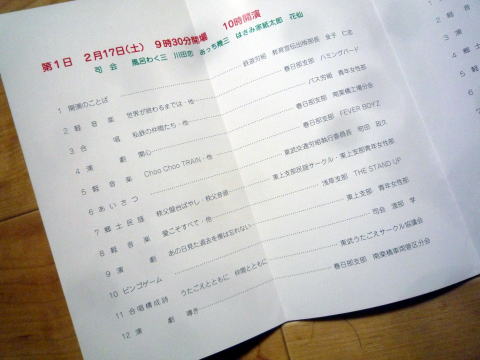 第1日 2月17日(土) 9時30分開場 10時開演
司会 風呂わく三 川田恋 あっち幾三 はさみ家紙太郎 花仙
1 開演のことば 鉄道労組 教育宣伝出版部長 金子 仁志
2 軽音楽 世界が終わるまでは・他 春日部支部 ハミングバード
3 合唱 私鉄の仲間たち・他 バス労組 青年女性部
4 演劇 関心 春日部支部 南栗橋工場分会
5 軽音楽 Choo Choo TRAIN・他 春日部支部 FEVER BOYZ
6 あいさつ 東武交通労組執行委員長
7 郷土民謡 秩父屋台ばやし・秩父音頭 東上支部民謡サークル・東上支部青年女性部
8 軽音楽 愛こそすべて・他 浅草支部 THE STAND UP
9 演劇 あの日見た過去を僕は忘れない 東上支部 青年女性部
10 ビンゴゲーム 司会 渡部 学
11 合唱構成詩 うたごえとともに 仲間とともに 東武うたごえサークル協議会
12 演劇 導き 春日部支部 南栗橋車両管区分会